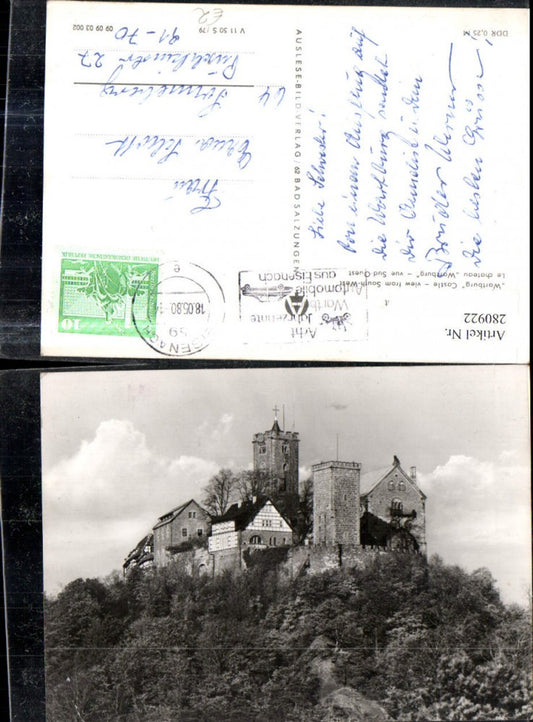 Liebe Schwester!
Von einem Ausflug auf
die Wartburg sendet
Dir Annelise u. Dein
Bruder Werner
die besten Grüsse!
Frau
Erna Schott
64 Sonneberg
27
E2
91-70
V 11 50 S/79
09 09 03 002
DDR 0,25 M
AUSLESE-BILD-VERLAG / 62 BAD SALZUNGEN
"Wartburg" Castle – view from South-West
Le chateau „Wartburg" vue Sud-Ouest
it
Artikel Nr.
280922
DEUTSCHE DEMOKRATISCHE REPUBLIK
10
18.05.80
59
e
Acht
Jahrzehnte
Automobile
aus Eisenach